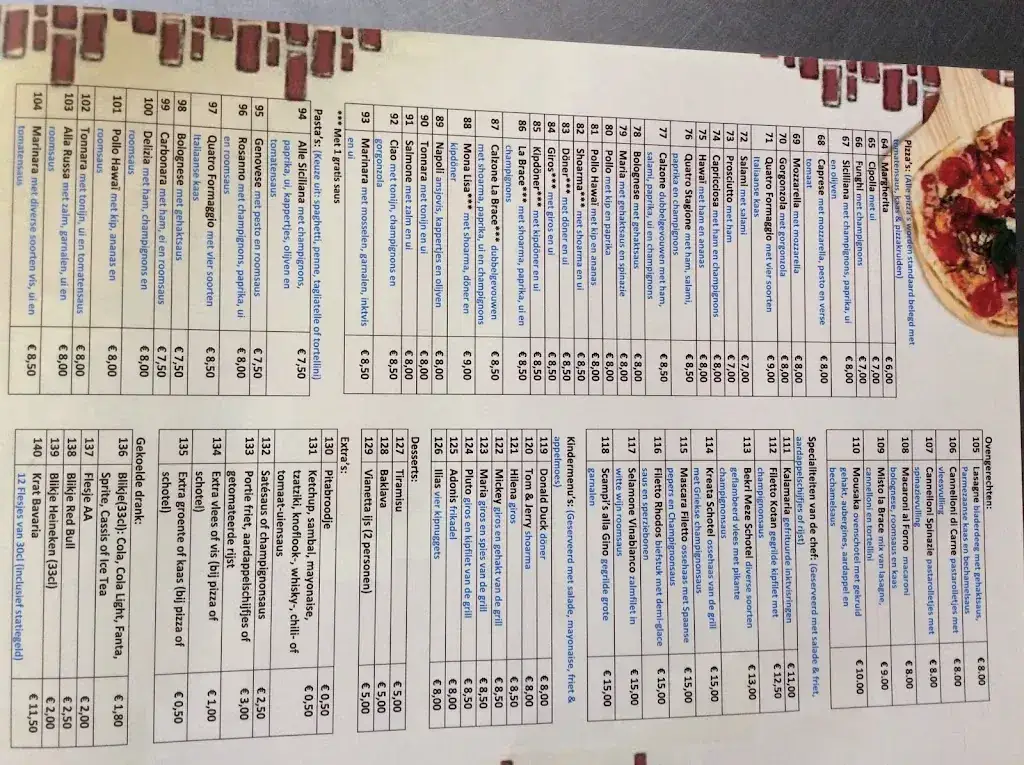 Pizza's: (Alle pizza's worden standaard belegd met
tomatensaus, kaas & pizzakruiden)
64 Margherita € 6,00
65 Cipolla met ui € 7,00
66 Funghi met champignons € 7,00
67 Siciliana met champignons, paprika, ui € 8,00
en olijven
68 Caprese met mozzarella, pesto en verse € 8,00
tomaat
69 Mozzarella met mozzarella € 8,00
70 Gorgonzola met gorgonzola € 8,00
71 Quatro Formaggio met vier soorten € 9,00
Italiaanse kaas
72 Salami met salami € 7,00
73 Prosciutto met ham € 7,00
74 Capricciosa met ham en champignons € 8,00
75 Hawaï met ham en ananas € 8,00
76 Quatro Stagione met ham, salami, € 8,50
paprika en champignons
77 Calzone dubbelgevouwen met ham, € 8,50
salami, paprika, ui en champignons
78 Bolognese met gehaktsaus € 8,00
79 Maria met gehaktsaus en spinazie € 8,00
80 Pollo met kip en paprika € 8,00
81 Pollo Hawaï met kip en ananas € 8,00
82 Shoarma*** met shoarma en ui € 8,50
83 Döner*** met döner en ui € 8,50
84 Giros*** met giros en ui € 8,50
85 Kipdöner*** met kipdöner en ui € 8,50
86 La Brace*** met shoarma, paprika, ui en € 8,50
champignons
87 Calzone La Brace*** dubbelgevouwen € 8,50
met shoarma, paprika, ui en champignons
88 Mona Lisa*** met shoarma, döner en € 9,00
kipdöner
89 Napoli ansjovis, kappertjes en olijven € 8,00
90 Tonnara met tonijn en ui € 8,00
91 Salmone met zalm en ui € 8,00
92 Ciao met tonijn, champignons en € 8,50
gorgonzola
93 Marinara met mosselen, garnalen, inktvis € 8,50
en ui
*** Met 1 gratis saus
Pasta's: (Keuze uit: spaghetti, penne, tagliatelle of tortellini)
94 Alle Siciliana met champignons, € 7,50
paprika, ui, kappertjes, olijven en
tomatensaus
95 Genovese met pesto en roomsaus € 7,50
96 Rosanno met champignons, paprika, ui € 8,00
en roomsaus
97 Quatro Formaggio met vier soorten € 8,50
Italiaanse kaas
98 Bolognese met gehaktsaus € 7,50
99 Carbonara met ham, ei en roomsaus € 7,50
100 Delizia met ham, champignons en € 8,00
roomsaus
101 Pollo Hawaï met kip, ananas en € 8,00
roomsaus
102 Tonnara met tonijn, ui en tomatensaus € 8,00
103 Alla Russa met zalm, garnalen, ui en € 8,00
roomsaus
104 Marinara met diverse soorten vis, ui en € 8,50
tomatensaus
Ovengerechten:
105 Lasagne bladerdeeg met gehaktsaus, € 8.00
Parmezaanse kaas en bechamelsaus
106 Cannelloni di Carne pastarolletjes met € 8.00
vleesvulling
107 Cannelloni Spinazie pastarolletjes met € 8.00
spinazievulling
108 Macaroni al Forno macaroni € 8.00
bolognese, roomsaus en kaas
109 Misto la Brace mix van lasagne, € 9.00
cannelloni en tortellini
110 Mousaka ovenschotel met gekruid € 10.00
gehakt, aubergines, aardappel en
bechamelsaus
Specialiteiten van de chef: (Geserveerd met salade & friet,
aardappelschijfjes of rijst)
111 Kalamaria gefrituurde inktvisringen € 11,00
112 Filetto Kotan gegrilde kipfilet met € 12,50
champignonsaus
113 Bekri Meze Schotel diverse soorten € 13,00
geflambeerd vlees met pikante
champignonsaus
114 Kreata Schotel ossehaas van de grill € 15,00
met Griekse champignonsaus
115 Mascara Filetto ossehaas met Spaanse € 15,00
peppers en Champignonsaus
116 Filetto Rhodos biefstuk met demi-glace € 15,00
saus en sperziebonen
117 Selamone Vinabianco zalmfilet in € 15,00
witte wijn roomsaus
118 Scampi's alla Gino gegrilde grote € 15,00
garnalen
Kindermenu's: (Geserveerd met salade, mayonaise, friet &
appelmoes)
119 Donald Duck döner € 8,00
120 Tom & Jerry shoarma € 8,00
121 Hilena giros € 8,50
122 Mickey giros en gehakt van de grill € 8,50
123 Maria giros en spies van de grill € 8,50
124 Pluto giros en kipfilet van de grill € 8,50
125 Adonis frikadel € 8,00
126 Ilias vier kipnuggets € 8,00
Desserts:
127 Tiramisu € 5,00
128 Baklava € 5,00
129 Vianetta ijs (2 personen) € 5,00
Extra's:
130 Pitabroodje € 0,50
131 Ketchup, sambal, mayonaise, € 0,50
tzatziki, knoflook-, whisky-, chili- of
tomaat-uiensaus
132 Satésaus of champignonsaus € 2,50
133 Portie friet, aardappelschijfjes of € 3,00
getomateerde rijst
134 Extra vlees of vis (bij pizza of € 1,00
schotel)
135 Extra groente of kaas (bij pizza of € 0,50
schotel)
Gekoelde drank:
136 Blikje(33cl): Cola, Cola Light, Fanta, € 1,80
Sprite, Cassis of Ice Tea
137 Flesje AA € 2,00
138 Blikje Red Bull € 2,50
139 Blikje Heineken (33cl) € 2,00
140 Krat Bavaria € 11,50
12 Flesjes van 30cl (inclusief statiegeld)